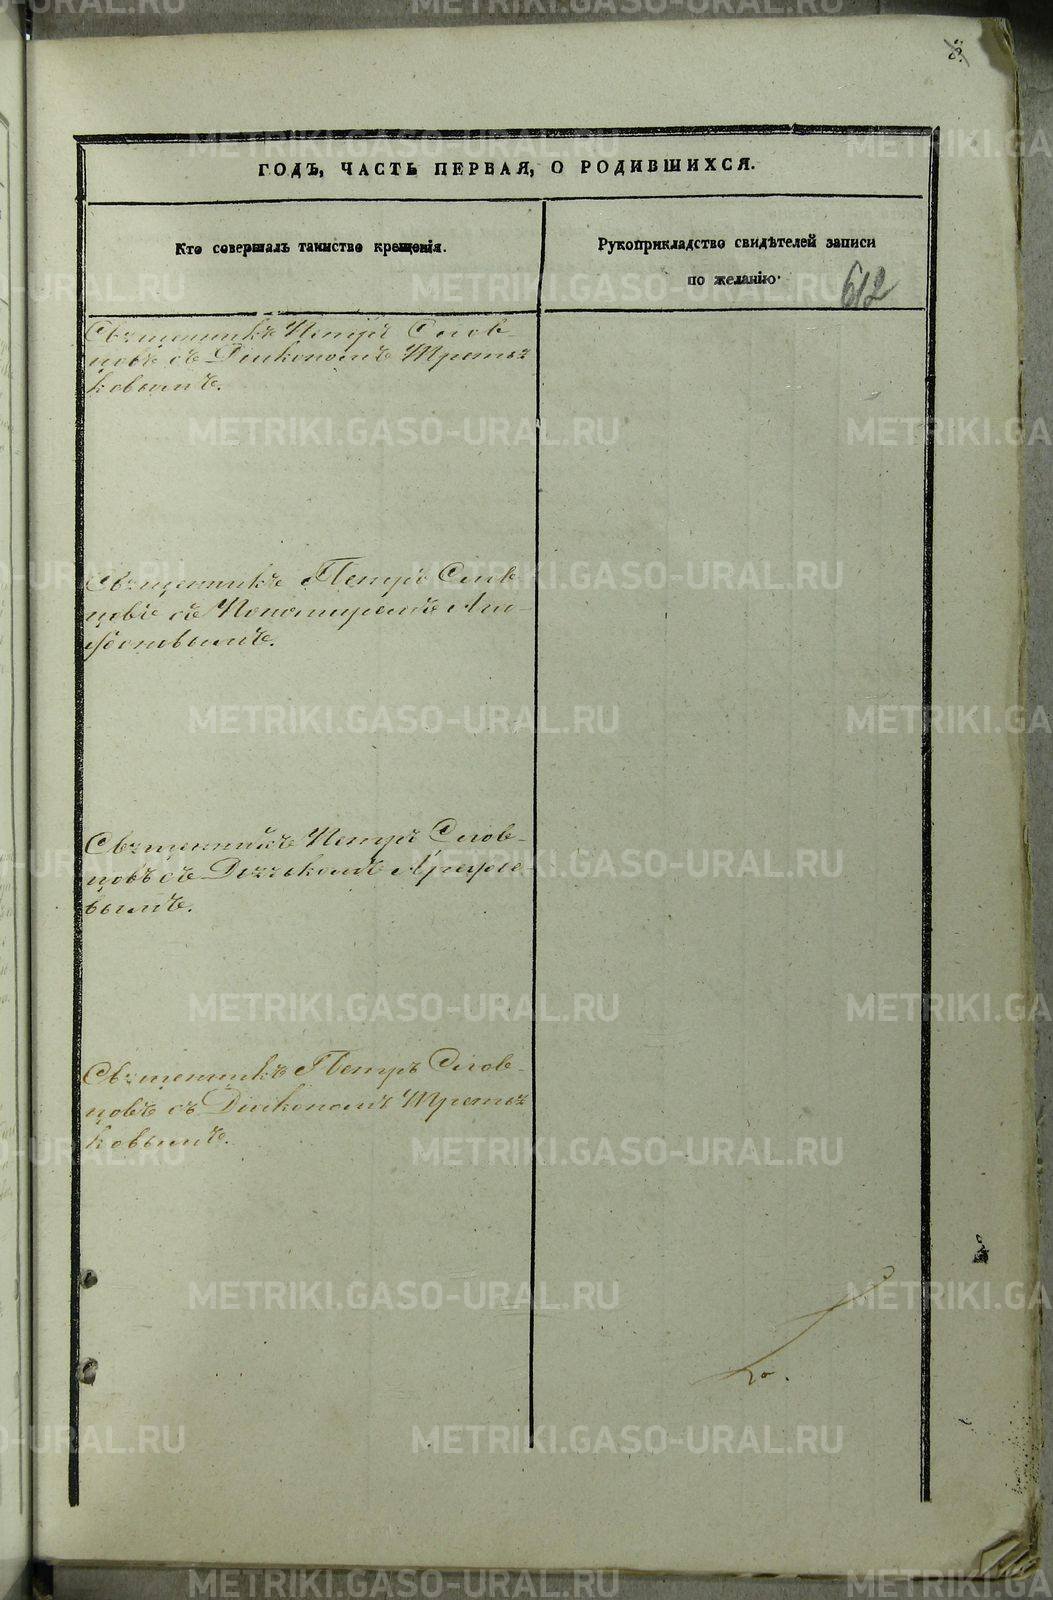 ГОДЪ, ЧАСТЬ ПЕРВАЯ, О РОДИВШИХСЯ.
Кто совершалъ таинство крещенія.
Рукоприкладство свидѣтелей записи
по желанію.
612
Священникъ Петръ Слов-
цовъ съ Діакономъ Третья
ковымъ.
Священникъ Петръ Слов-
цовъ съ Пономаремъ Ага-
фоновымъ.
Священникъ Петръ Слов-
цовъ съ Дьячкомъ Арефье
вымъ.
Священникъ Петръ Слов-
цовъ съ Діакономъ Третья
ковымъ.
METRIKI.GASO-URAL.RU